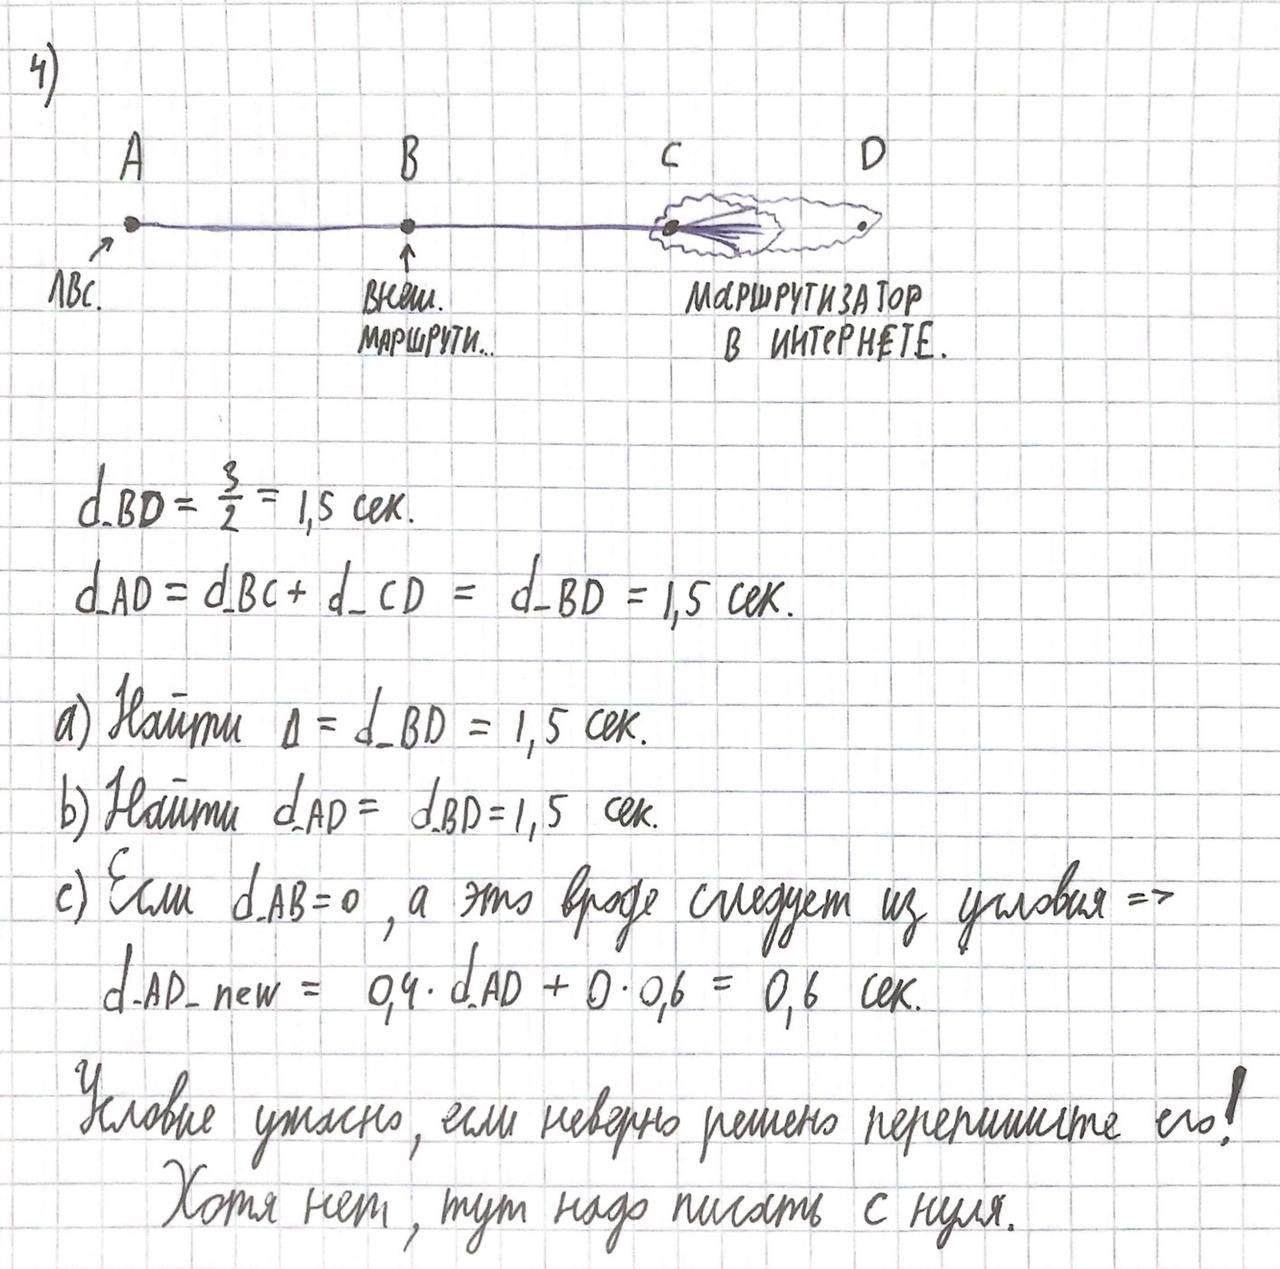 4)
A B C D
ЛВС.
ВНЕШ.
МАРШРУТИ...
МАРШРУТИЗАТОР
В ИНТЕРНЕТЕ.
d_BD = 3/2 = 1,5 сек.
d_AD = d_BC + d_CD = d_BD = 1,5 сек.
a) Найти Δ = d_BD = 1,5 сек.
b) Найти d_AD = d_BD = 1,5 сек.
c) Если d_AB = 0, а это вроде следует из условия =>
d_AD_new = 0,4 · d_AD + 0 · 0,6 = 0,6 сек.
Условие ужасно, если неверно решено перепишите его!
Хотя нет, тут надо писать с нуля.